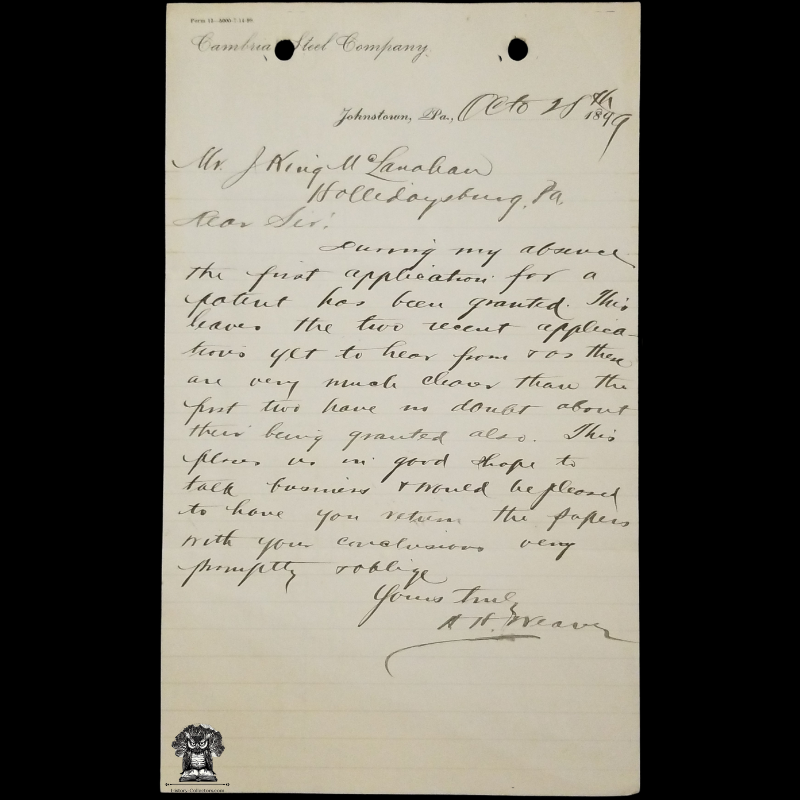 Cambria Steel Company.
Johnstown, Pa., Octo 28th 1899
Mr. J King McLanahan
Hollidaysburg, Pa.
Dear Sir!
During my absence
the first application for a
patent has been granted. This
leaves the two recent applica-
tions yet to hear from & as these
are very much clearer than the
first two have no doubt about
their being granted also. This
places us in good shape to
talk business & would be pleased
to have you return the papers
with your conclusions very
promptly & oblige
Yours truly
H. Weaver
History-Collectors.com